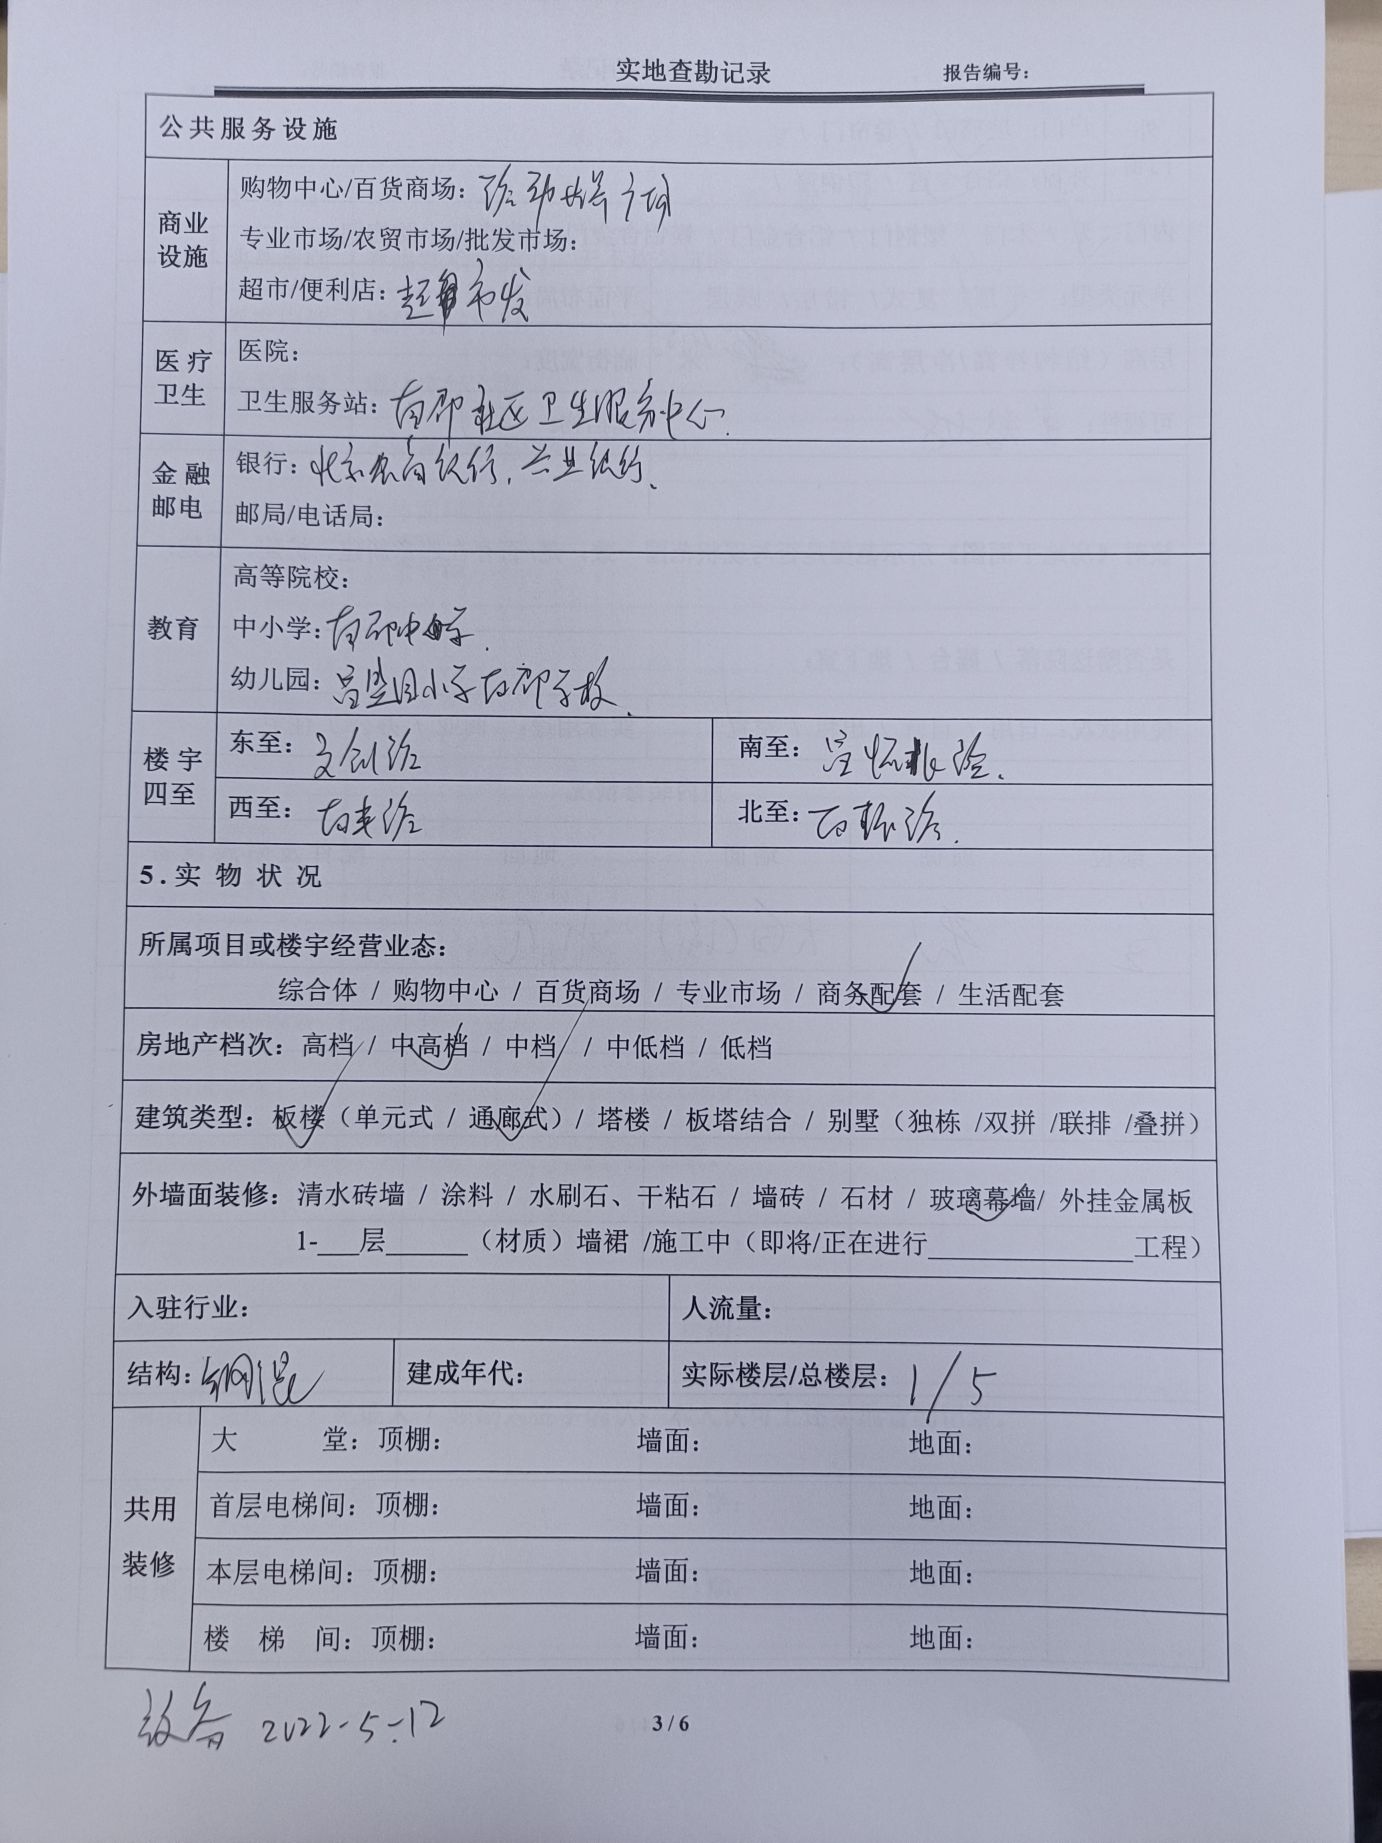 实地查勘记录 报告编号：
公共服务设施
商业设施
购物中心/百货商场：
专业市场/农贸市场/批发市场：
超市/便利店：超市发
医疗卫生
医院：
卫生服务站：百郡社区卫生服务中心.
金融邮电
银行：北京农商银行，兴业银行、
邮局/电话局：
教育
高等院校：
中小学：中学.
幼儿园：小学学校.
楼宇四至
东至：文创路 南至：路.
西至：路 北至：路.
5.实物状况
所属项目或楼宇经营业态：
综合体 / 购物中心 / 百货商场 / 专业市场 / 商务配套 / 生活配套
房地产档次：高档 / 中高档 / 中档 / 中低档 / 低档
建筑类型：板楼（单元式 / 通廊式）/ 塔楼 / 板塔结合 / 别墅（独栋 /双拼 /联排 /叠拼）
外墙面装修：清水砖墙 / 涂料 / 水刷石、干粘石 / 墙砖 / 石材 / 玻璃幕墙/ 外挂金属板
1-___层______（材质）墙裙 /施工中（即将/正在进行_______________工程）
入驻行业： 人流量：
结构：钢混 建成年代： 实际楼层/总楼层：1/5
共用装修
大堂：顶棚： 墙面： 地面：
首层电梯间：顶棚： 墙面： 地面：
本层电梯间：顶棚： 墙面： 地面：
楼梯间：顶棚： 墙面： 地面：
2022-5-12
3/6